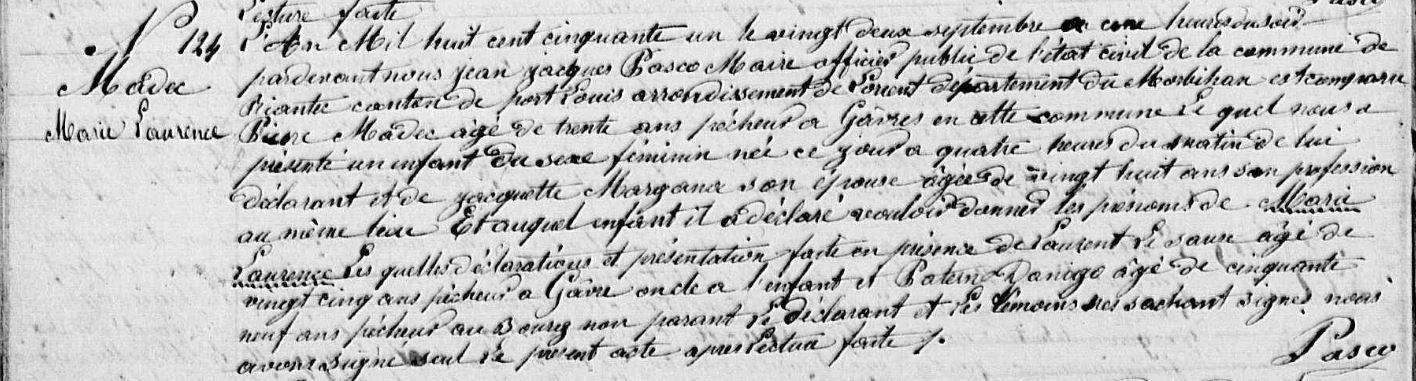 Lecture faite
Pasco
N° 124
Madec
Marie Laurence
L'An Mil huit cent cinquante un le vingt deux septembre a heures du soir
pardevant nous jean jacques Pasco Maire officier public de l'état civil de la commune de
Riantec canton de port Louis arrondissement de Lorient département du Morbihan est comparu
Pierre Madec âgé de trente ans pécheur a Gâvres en cette commune Le quel nous a
présenté un enfant du sexe féminin née ce jour a quatre heures du matin de lui
déclarant et de jacquette Margana son épouse âgée de vingt huit ans son profession
au même lieu Et auquel enfant il a déclaré vouloir donner les prénoms de Marie
Laurence Les quelles déclarations et présentation faite en présence de Laurent Le âgé de
vingt cinq ans pécheur a Gâvre oncle a l'enfant et Patern Danigo âgé de cinquante
neuf ans pécheur au Bourg non parant Le déclarant et les témoins sachant signer nous
avons signé seul Le present acte apres Lecture faite ./.
Pasco